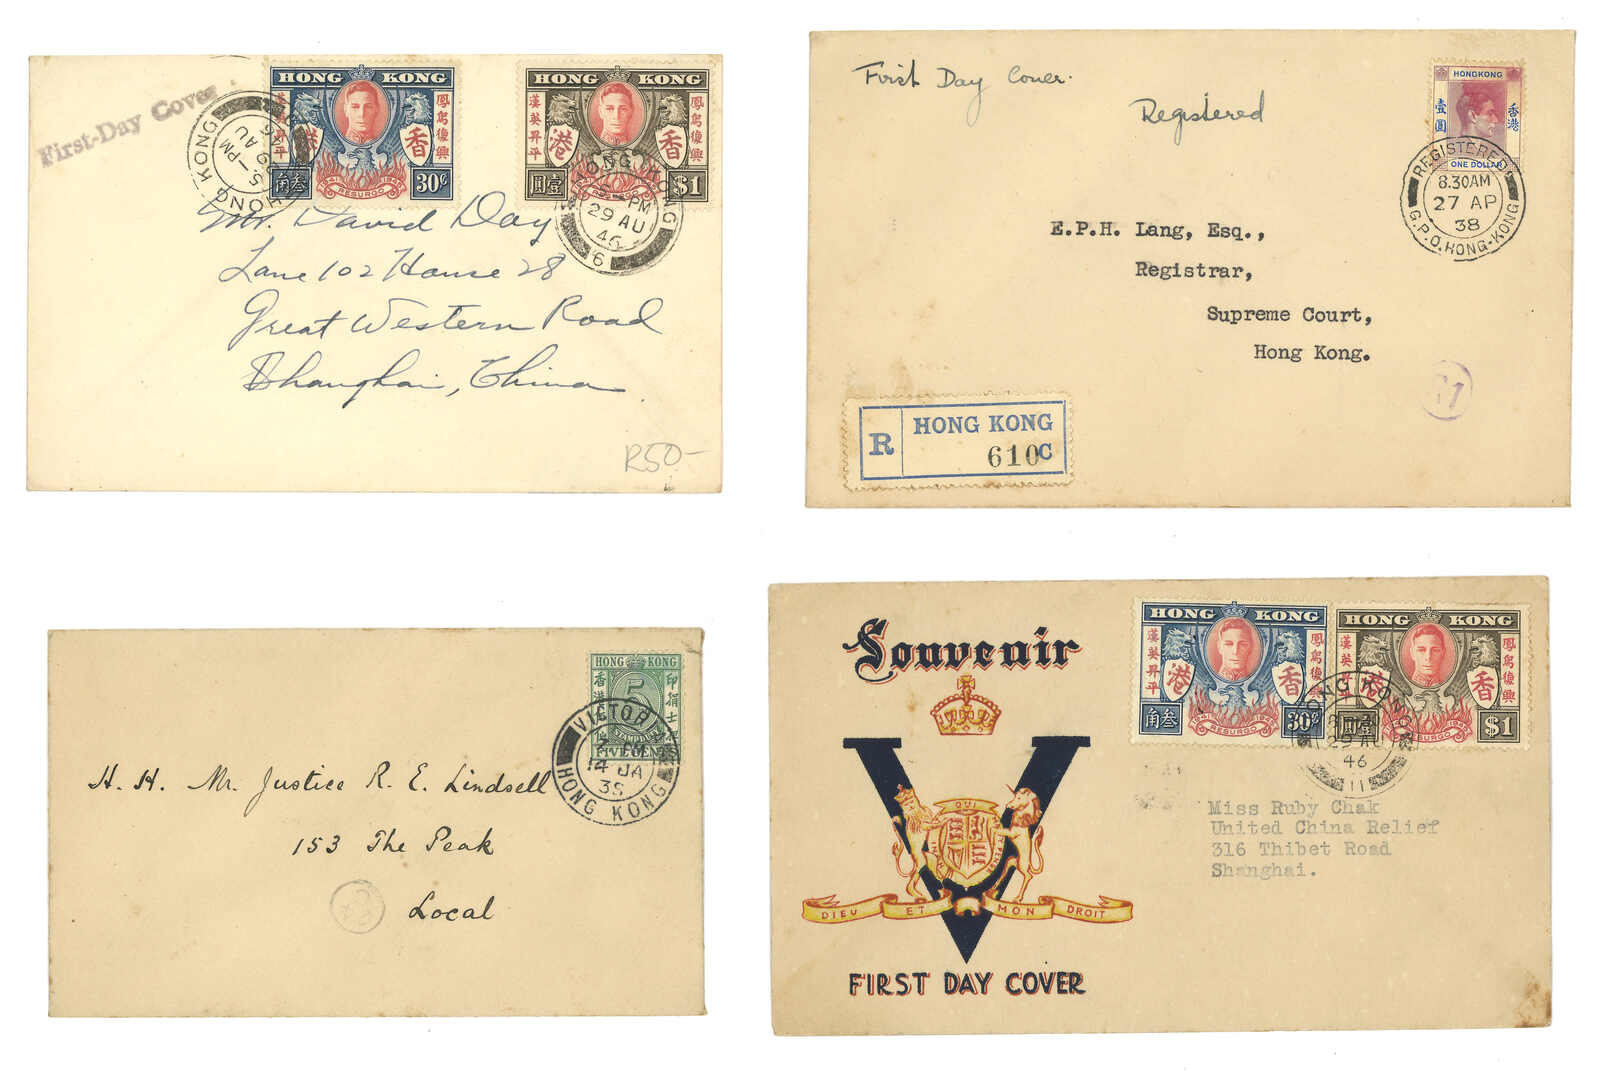 First-Day Cover
HONG KONG
鳳鳥復興
漢英昇平
港 香
叁角
30¢
1941 RESURGO 1945
HONG KONG
漢英昇平
鳳鳥復興
港 香
壹圓
$1
RESURGO
HONG KONG
5 - PM
29 AU
46
HONG KONG
5 - PM
29 AU
46
6
Mr. David Day
Lane 102 House 28
Great Western Road
Shanghai, China
R50-
First Day Cover.
Registered
HONGKONG
壹圓
香港
ONE DOLLAR
REGISTERED
8.30AM
27 AP
38
G.P.O. HONG-KONG
E.P.H. Lang, Esq.,
Registrar,
Supreme Court,
Hong Kong.
R HONG KONG
610C
HONG KONG
香港
印捐士
5
STAMP DUTY
FIVE CENTS
VICTORIA
4 JA
HONG KONG
H. H. Mr. Justice R. E. Lindsell
153 The Peak
Local
Souvenir
QUI
DIEU ET MON DROIT
V
FIRST DAY COVER
HONG KONG
漢英昇平
鳳鳥復興
港 香
叁角
30¢
1941 RESURGO 1945
HONG KONG
漢英昇平
鳳鳥復興
港 香
壹圓
$1
RESURGO 1945
HONG KONG
29 AU
46
11
Miss Ruby Chak
United China Relief
316 Thibet Road
Shanghai.